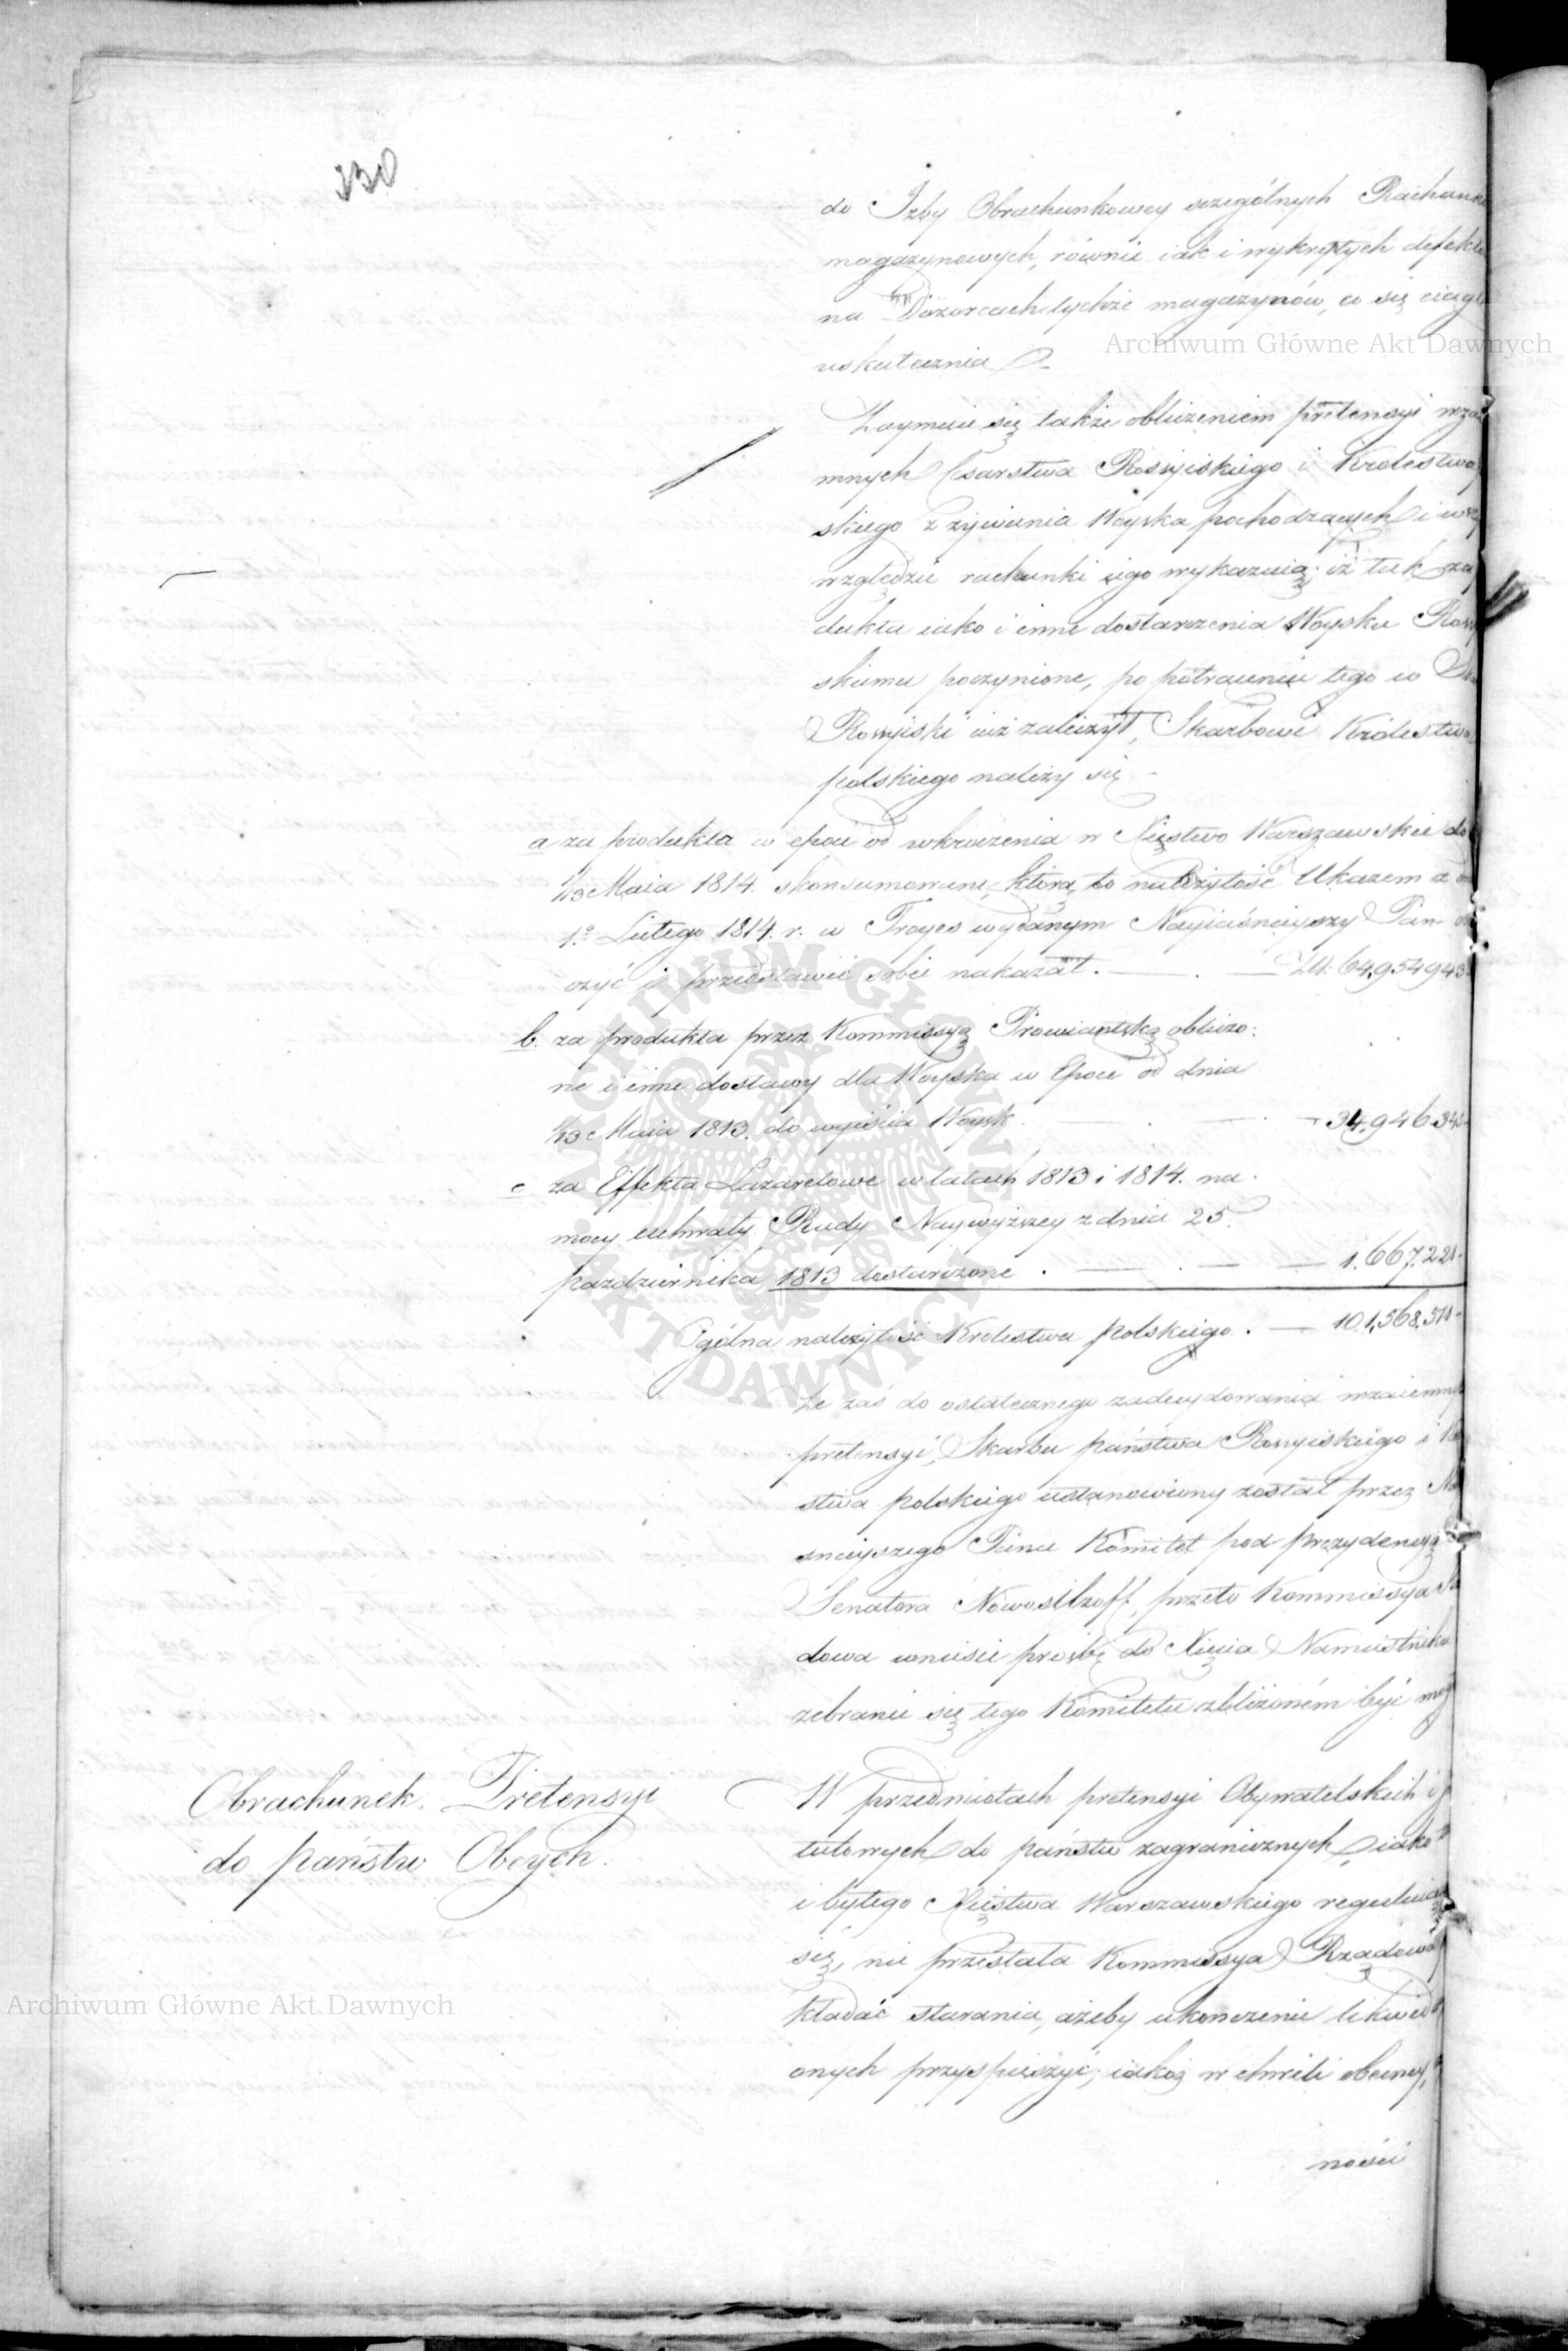 330
do Izby Obrachunkowey szczególnych Rachunk
magazynowych, równie iak i wykrytych defekt
na Dozorcach tychże magazynów, co się ciągl
uskutecznia
Zaymuie się także obliczeniem pretensyi wza
mnych Csarstwa Rossyiskiego i Królestwa
skiego z żywienia Woyska pochodzących i w
względzie rachunki iego wykazuią; iż tak za
dukta iako i inne dostarczenia Woysku Ross
skiemu poczynione, po potrąceniu tego co
Rossyiski iuż zaliczył, Skarbowi Królestwa
polskiego należy się
a za produkta w epoce od wkroczenia w Xięstwo Warszawskie do
1/13 Maia 1814. skonsumowane, którą to należytość Ukazem z
1.º Lutego 1814. r. w Troyes wydanym Nayiaśnieyszy Pan
czyć i przedstawić sobie nakazał. — . — Złł. 64,954,943
b. za produkta przez Kommissyą Prowiantską obliczo:
ne i inne dostawy dla Woyska w Epoce od dnia
1/13 Maia 1813. do wyiścia Woysk . . — . — 34,946,34
c za Effekta Lazaretowe w latach 1813 i 1814. na
mocy uchwały Rady Naywyższey z dnia 25.
października 1813 dostarczone . — . — — 1.667.221
Ogólna należytość Królestwa polskiego . — 101,568,51
Że zaś do ostatecznego zadecydowania wzaiemn
pretensyi, Skarbu państwa Rossyiskiego i K
stwa polskiego ustanowiony został przez Na
śnieyszego Pana Komitet pod prezydencyą
Senatora Nowosilzoff, przeto Kommissya
dowa wniesie prośbę do Xięcia Namiestnika
zebranie się tego Komitetu zbliżoném być mog
Obrachunek Pretensyi
do państw Obcych.
W przedmiotach pretensyi Obywatelskich i
tutowych do państw zagranicznych, iako
i byłego Xięstwa Warszawskiego reguluią
się, nie przestała Kommissya Rządowa
kładać starania, ażeby ukończenie likwid
onych przyspieszyć; iakoż w chwili obecney,
ności
Archiwum Główne Akt Dawnych
Archiwum Główne Akt Dawnych
ARCHIWUM GŁÓWNE AKT DAWNYCH